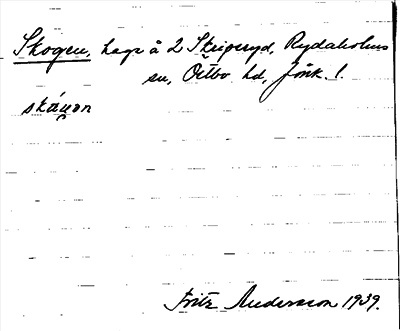 Skogen, hage å 2 Skeperyd, Rydaholms
sn, Östbo hd, Jönk. l.
skógən
Fritz Andersson 1939.